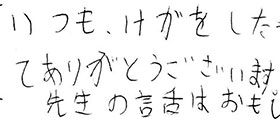 いつも、けがをした
てありがとうございます
先生の言舌はおもし